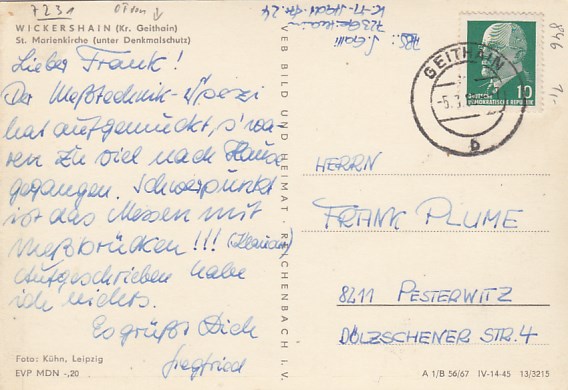 7231
WICKERSHAIN (Kr. Geithain)
St. Marienkirche (unter Denkmalschutz)
Lieber Frank!
Der Meßtechnik-
hat aufgemuckt, s' wa-
ren zu viel nach Hause
gegangen. Schwerpunkt
ist das Messen mit
Meßbrücken!!! (Klausur)
Aufgeschrieben habe
ich nichts.
Es grüßt Dich
Siegfried
Foto: Kühn, Leipzig
EVP MDN -,20
VEB BILD UND HEIMAT REICHENBACH I. V.
ABS:
723 Geithain
GEITHAIN
-5.3.
b
10
DEUTSCHE
DEMOKRATISCHE REPUBLIK
846
1,-
HERRN
FRANK PLUME
8211 PESTERWITZ
DÖLZSCHENER STR. 4
A 1/B 56/67 IV-14-45 13/3215